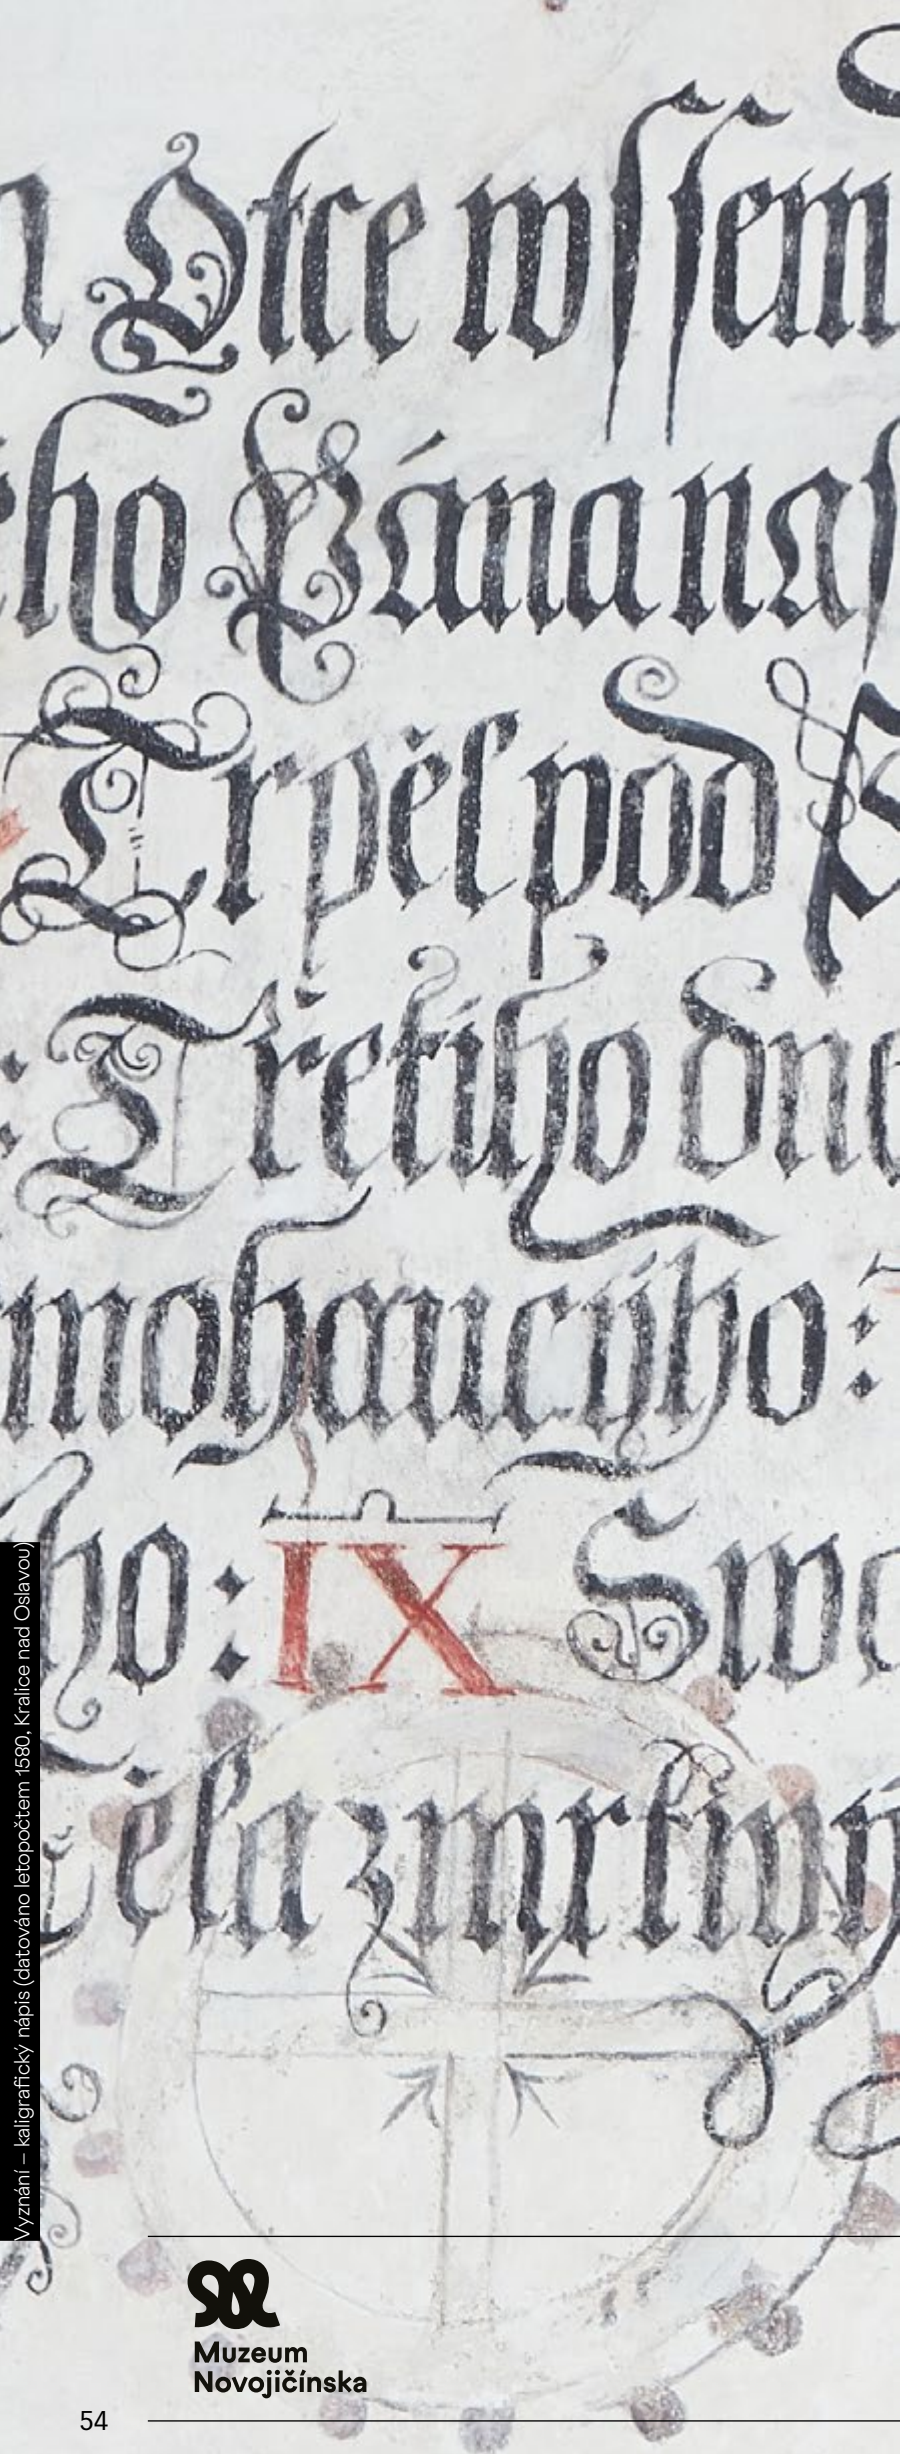 a Otce wssem
ho Pána nas
Trpěl pod P
: Třetiho dne
mohaucýho:
ho: IX Swa
ěla z mrtwý
Vyznání – kaligrafický nápis (datováno letopočtem 1580, Kralice nad Oslavou)
Muzeum
Novojičínska
54